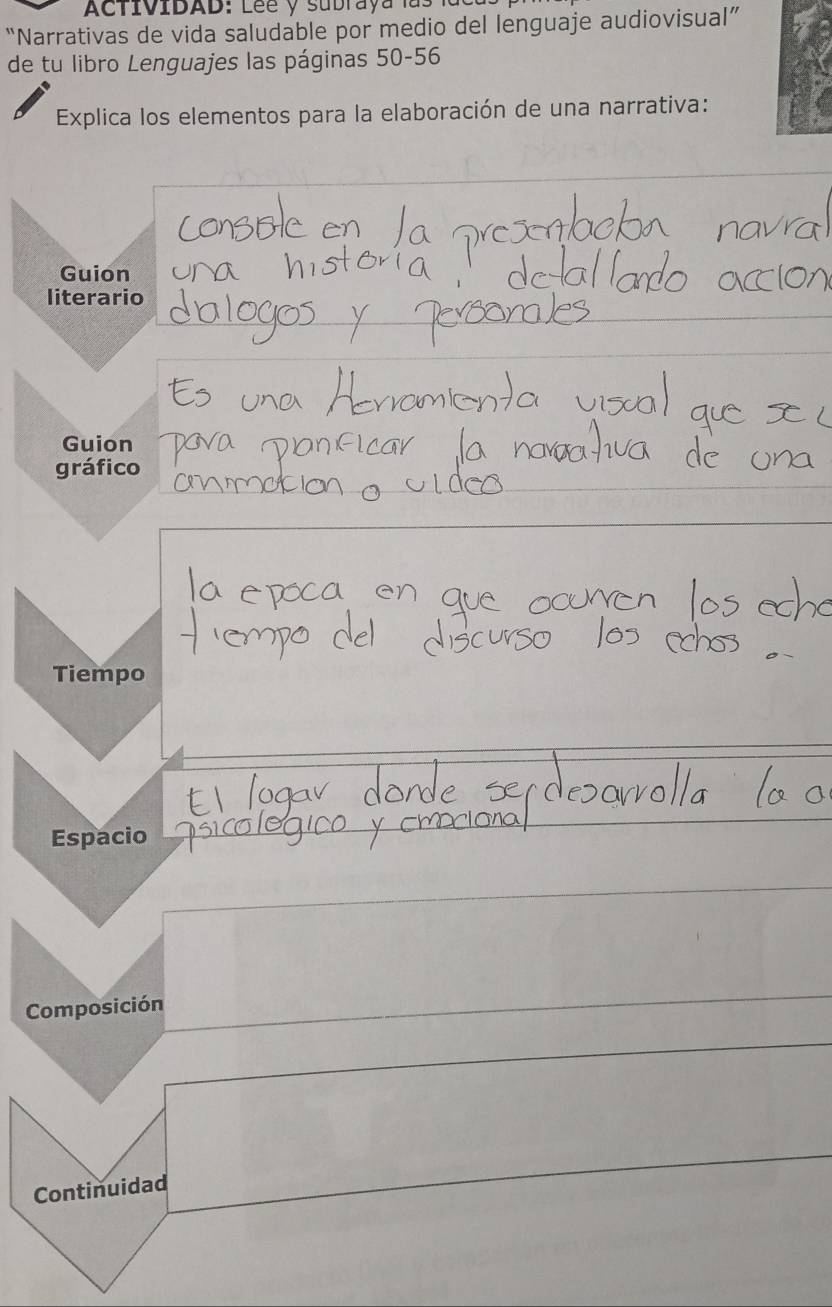 ACTIVIDAD: Lee y subraya las
"Narrativas de vida saludable por medio del lenguaje audiovisual"
de tu libro Lenguajes las páginas 50-56
Explica los elementos para la elaboración de una narrativa:
Guion
literario
en la navral
una historia, detallando accion
dialogos y personales
Guion
gráfico
Es una Herramienta visual que se
para la de una
o video
Tiempo
la epoca en que ocurren los echo
tiempo del discurso los echos
Espacio
El logar donde se desarrolla la a
psicologico y emocional
Composición
Continuidad